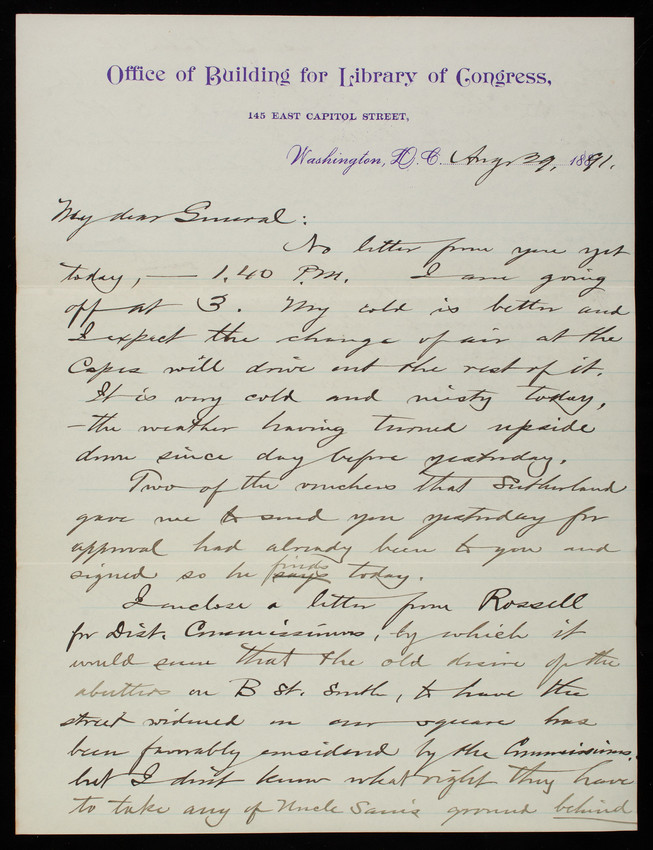 Office of Building for Library of Congress,
145 EAST CAPITOL STREET,
Washington, D. C. Aug 29, 1891.
My dear General:
No letter from you yet
today, — 1.40 P.M. I am going
off at 3. My cold is better and
I expect the change of air at the
Capes will drive out the rest of it.
It is very cold and misty today,
- the weather having turned upside
down since day before yesterday.
Two of the vouchers that Sutherland
gave me to send you yesterday for
approval had already been to you and
signed so he finds says today.
I enclose a letter from Rossell
for Dist. Commissioners, by which it
would seem that the old desire of the
abutters on B St. South, to have the
street widened on our square has
been favorably considered by the Commissioners.
but I don't know what right they have
to take any of Uncle Sam's ground behind